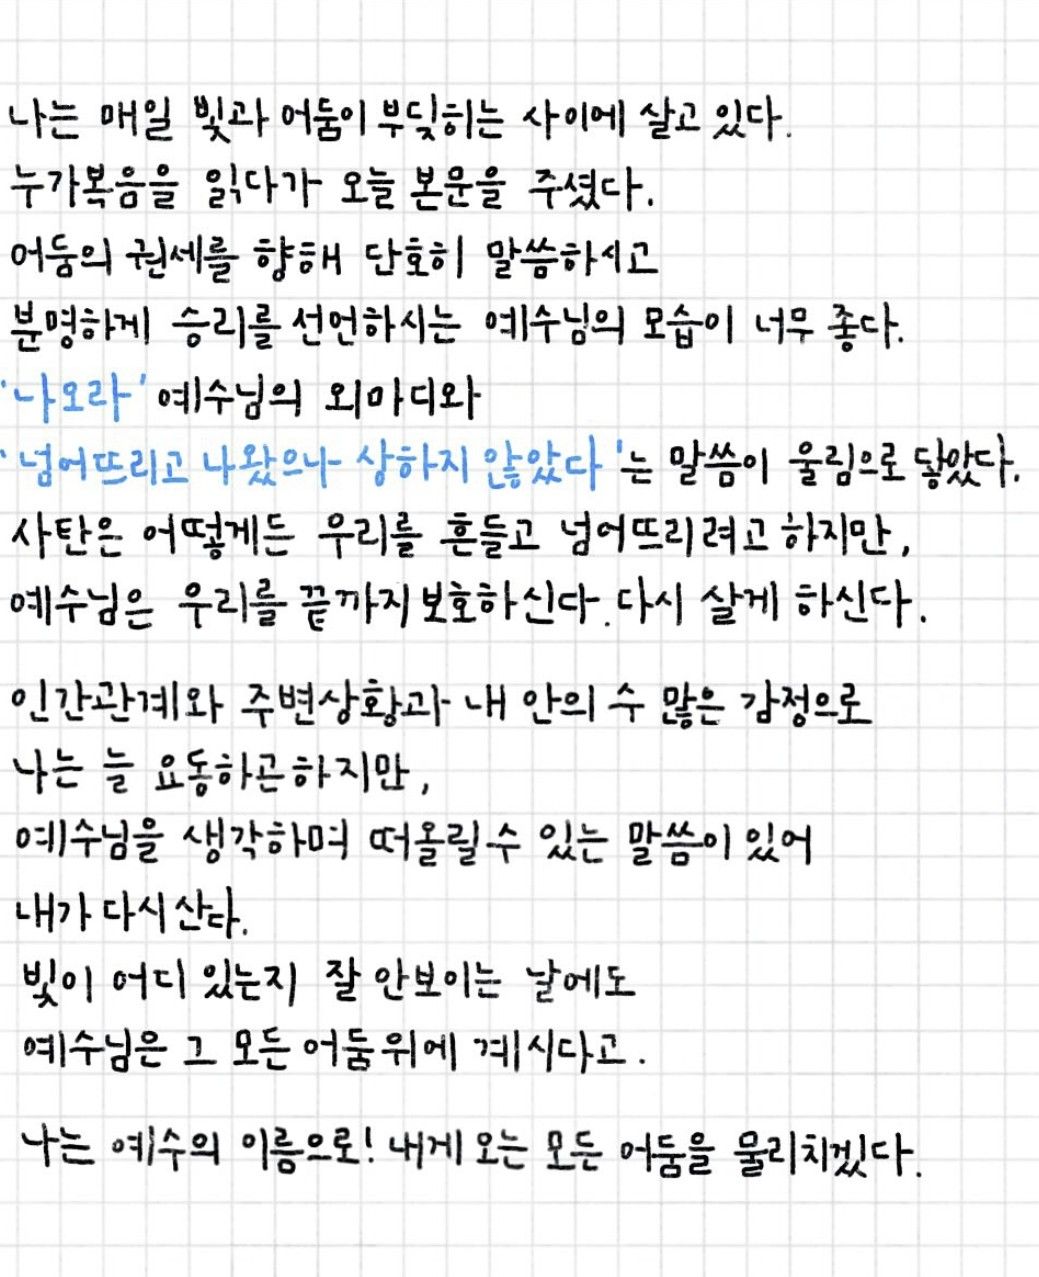 나는 매일 빛과 어둠이 부딪히는 사이에 살고 있다.
누가복음을 읽다가 오늘 본문을 주셨다.
어둠의 권세를 향해 단호히 말씀하시고
분명하게 승리를 선언하시는 예수님의 모습이 너무 좋다.
'나오라' 예수님의 외마디와
'넘어뜨리고 나왔으나 상하지 않았다'는 말씀이 울림으로 닿았다.
사탄은 어떻게든 우리를 흔들고 넘어뜨리려고 하지만,
예수님은 우리를 끝까지 보호하신다. 다시 살게 하신다.
인간관계와 주변상황과 내 안의 수 많은 감정으로
나는 늘 요동하곤 하지만,
예수님을 생각하며 떠올릴 수 있는 말씀이 있어
내가 다시 산다.
빛이 어디 있는지 잘 안보이는 날에도
예수님은 그 모든 어둠위에 계시다고.
나는 예수의 이름으로! 내게 오는 모든 어둠을 물리치겠다.